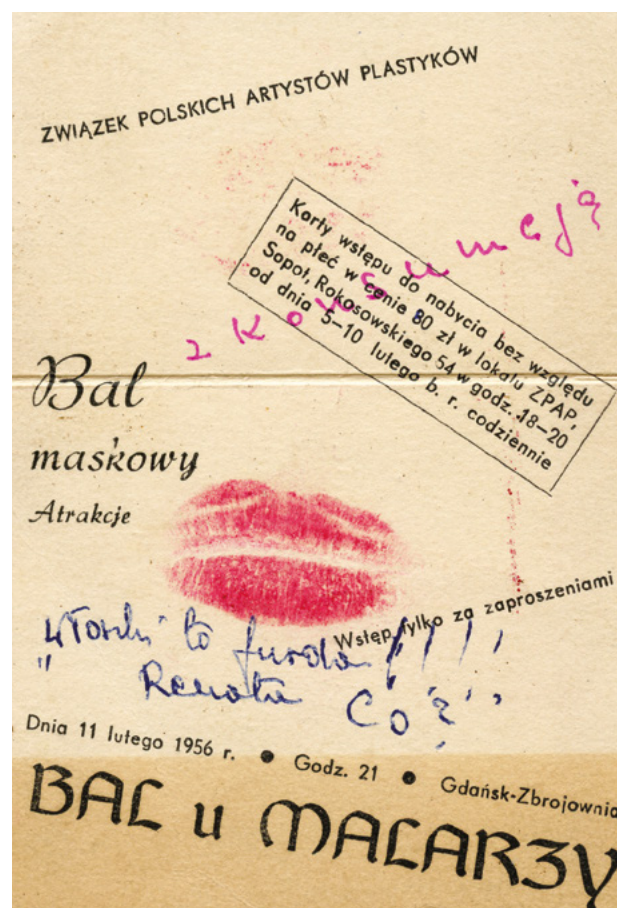 ZWIĄZEK POLSKICH ARTYSTÓW PLASTYKÓW
Karty wstępu do nabycia bez względu
na płeć w cenie 80 zł w lokalu ZPAP,
Sopot, Rokosowskiego 54 w godz. 18–20
od dnia 5–10 lutego b. r. codziennie
z Konsumcją
Bal
maskowy
Atrakcje
Wstęp tylko za zaproszeniami
to furda!!!!
Renata CO?
Dnia 11 lutego 1956 r. ● Godz. 21 ● Gdańsk-Zbrojownia
BAL u MALARZY